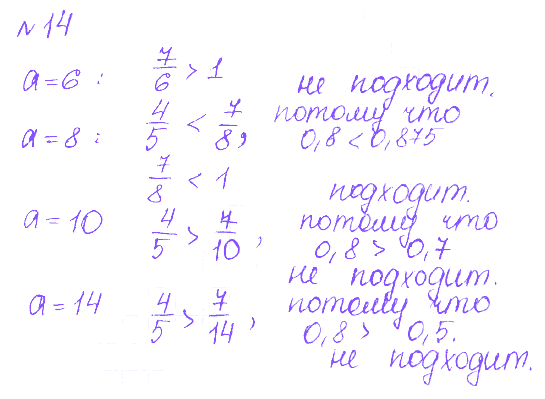 №14
a=6 : 7/6 > 1 не подходит.
a=8 : 4/5 < 7/8, потому что 0,8 < 0,875
7/8 < 1 подходит.
a=10 4/5 > 7/10, потому что 0,8 > 0,7
не подходит.
a=14 4/5 > 7/14, потому что 0,8 > 0,5.
не подходит.